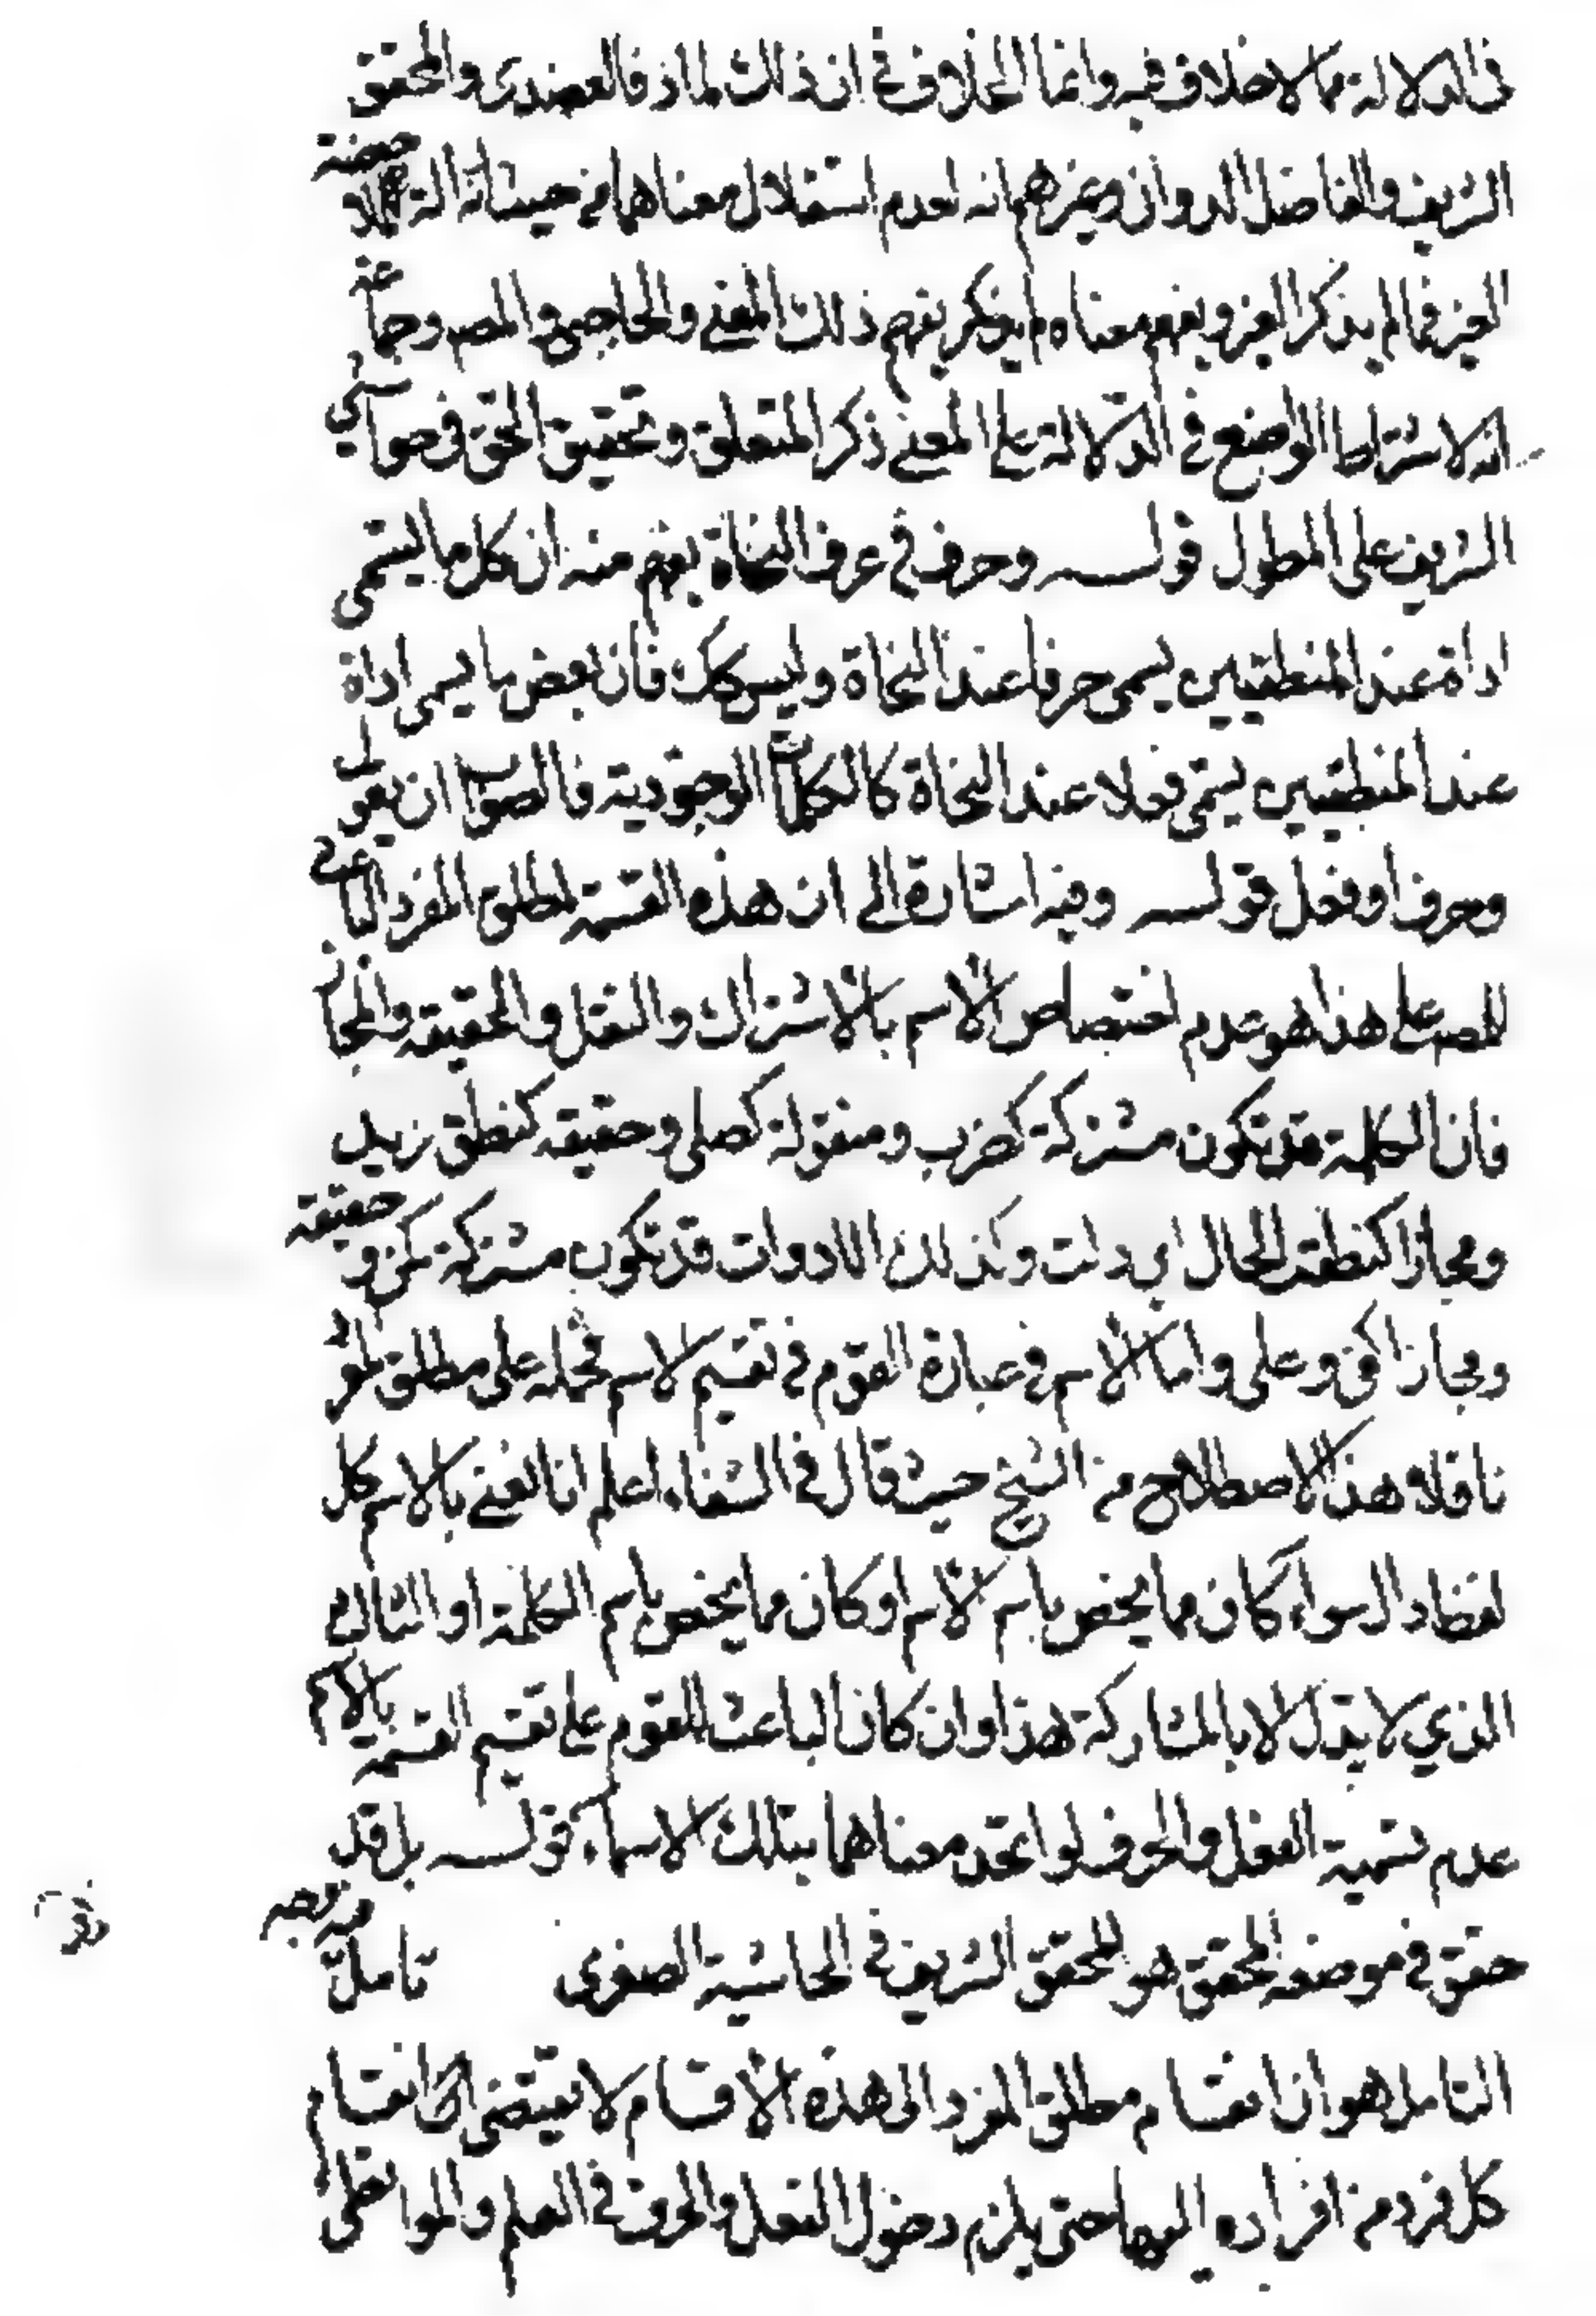 في الدلالة مما لا خلاف فيه وانما الخلاف في ان ذلك لماذا فالعضدى والمحقق
الشريف والفاضل الدوانى وغيرهم انه لعدم استقلال معناهما من حيث انه الة لملاحظة
الغير فما لم يذكر الغير ويفهم معناه لم يفهم ذلك المعنى والحاجبى والمص وجماعة
انه لاشتراط الواضع في الدلالة على المعنى ذكر المتعلق وتحقيق الحق في حواشي
الشريف على المطول قولـــه وحرف في عرف النحاة يفهم منه ان كل ما يسمى
اداة عند المنطقيين يسمى حرفا عند النحاة وليس كك فان بعض ما يسمى اداة
عند المنطقيين يسمى فعلا عند النحاة كالكلمات الوجودية فالصواب ان يقول
وحرف او فعل قولـــه وفيه اشارة الى ان هذه القسمة لمطلق المفرد الباعث
للمص على هذا هو عدم اختصاص الاسم بالاشتراك والنقل والحقيقة والمجاز
فان الكلمة قد تكون مشتركة كضرب ومنقولة كصلى وحقيقة كنطق زيد
ومجازا كنطقت الحال اي دلت وكذلك الادوات قد تكون مشتركة كمن وحقيقة
ومجازا كفي وعلى واما الاسم في عبارة القوم في تقسيم الاسم فحمله على مطلق المفرد
ناقلا هذا الاصطلاح من الشيخ حيث قال في الشفاء اعلم انا نعنى بالاسم كل
لفظ دال سواء كان مما يخص باسم الاسم او كان مما يخص باسم الكلمة او الثالث
الذي لا يدل الا بالمشاركة هذا وان كان الباعث للقوم على تقسيم القسمة بالاسم
عدم تسمية الفعل والحرف لو اتحد معناهما بتلك الاسماء قولـــه بل قد
حقق في موضعه المحقق هو المحقق الشريف في الحاشية الصغرى تامل وجه
التامل هو ان انقسام مطلق المفرد الى هذه الاقسام لا يقتضى انقسام
كل فرد من افراده اليها حتى يلزم دخول الفعل والحرف في العلم والمتواطى